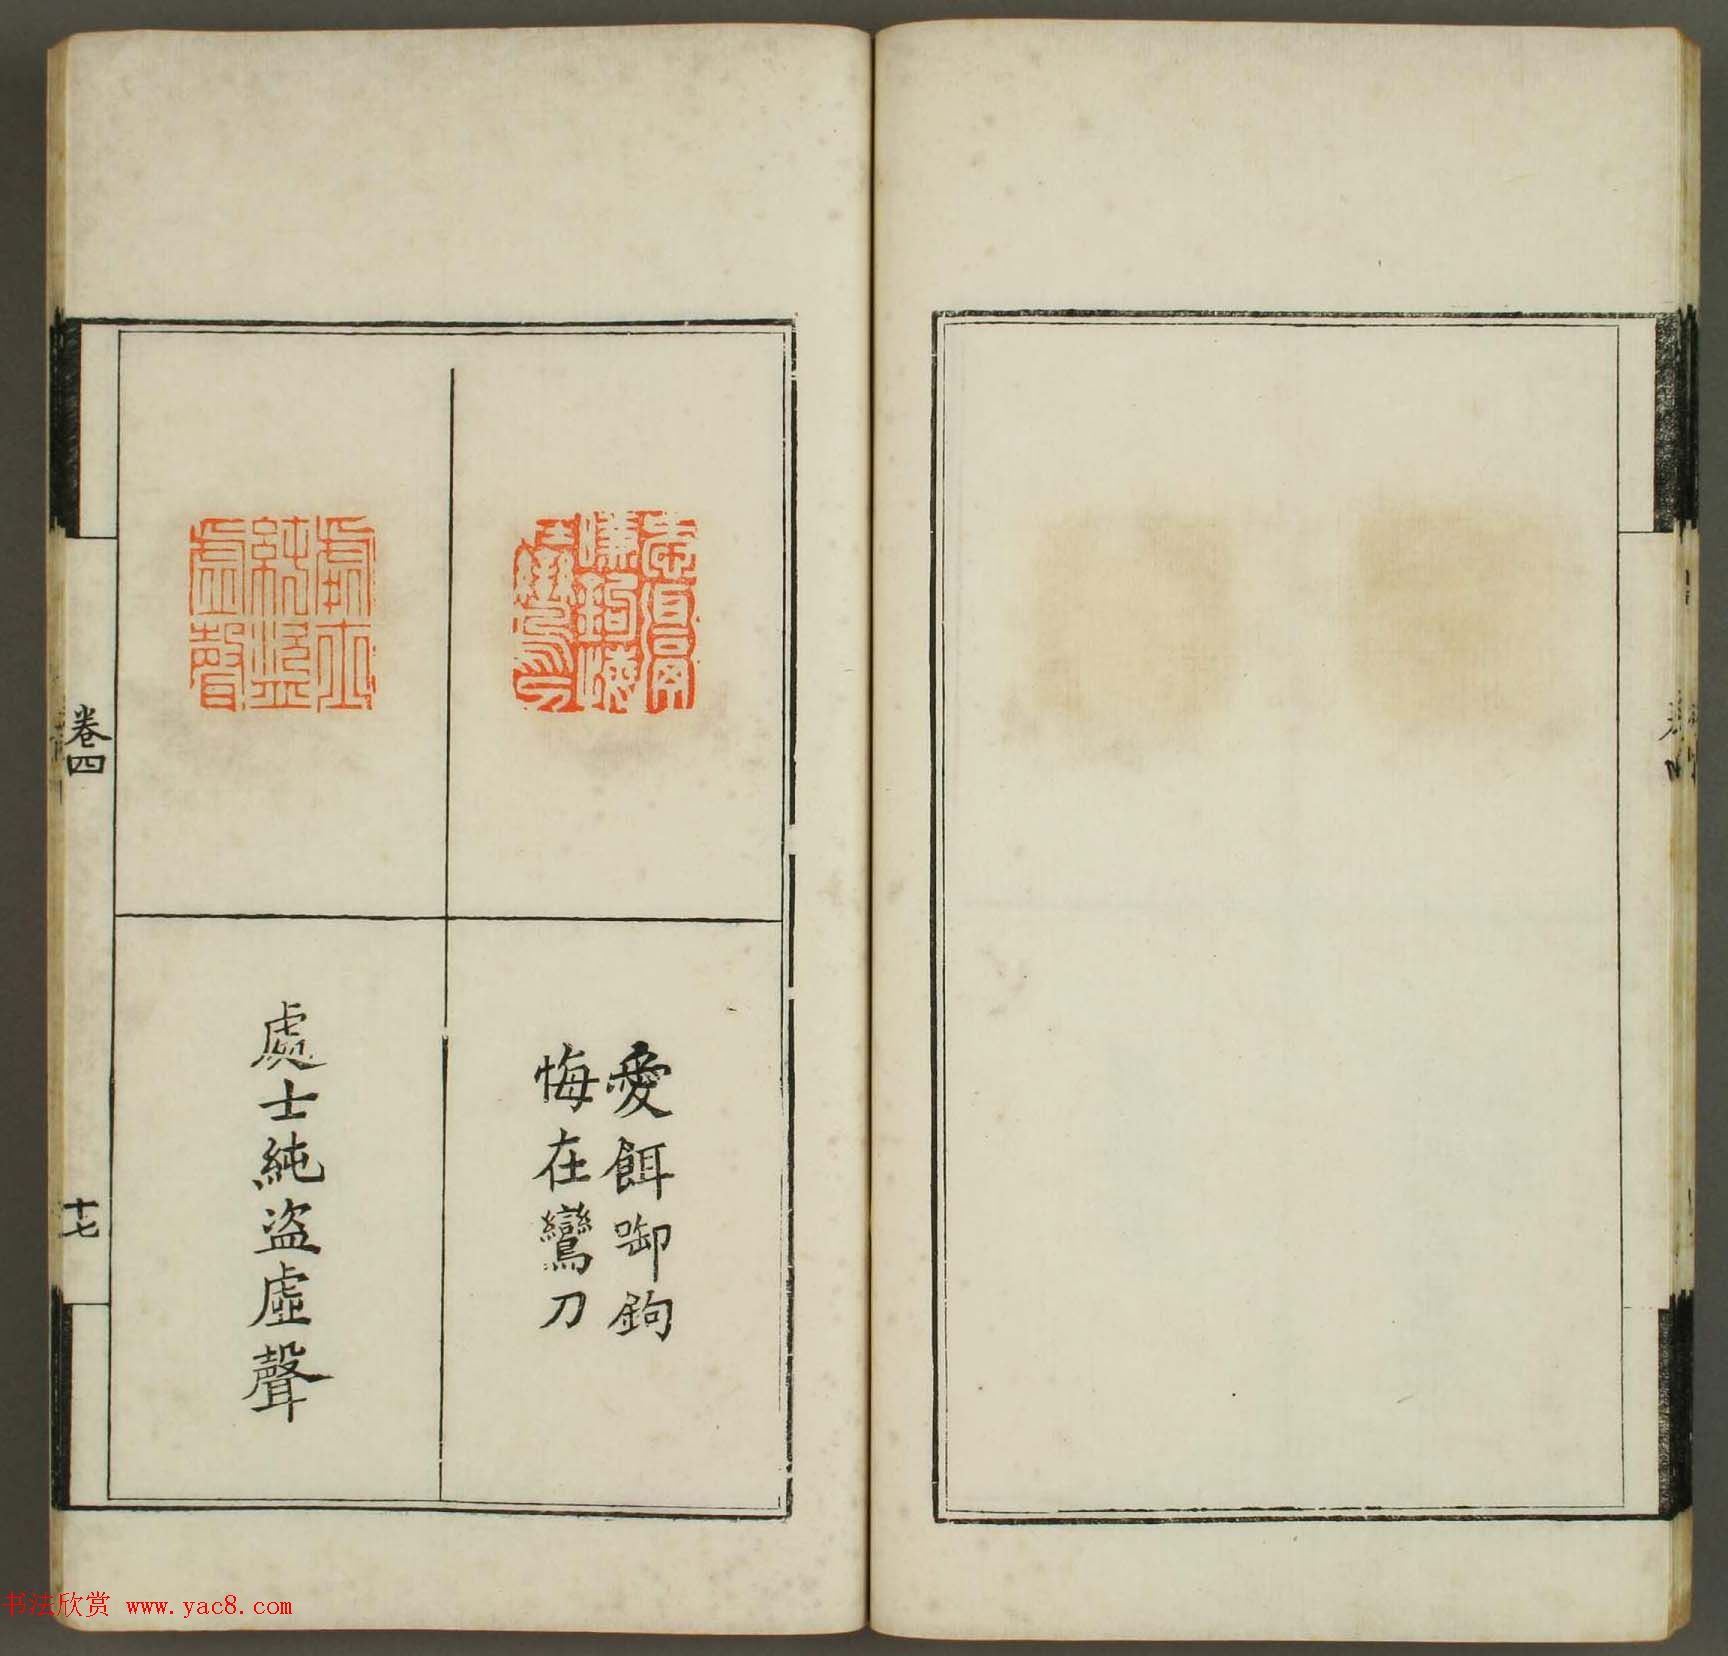 愛餌啣鉤
悔在鸞刀
處士純盜虛聲
卷四
十七
书法欣赏 www.yac8.com